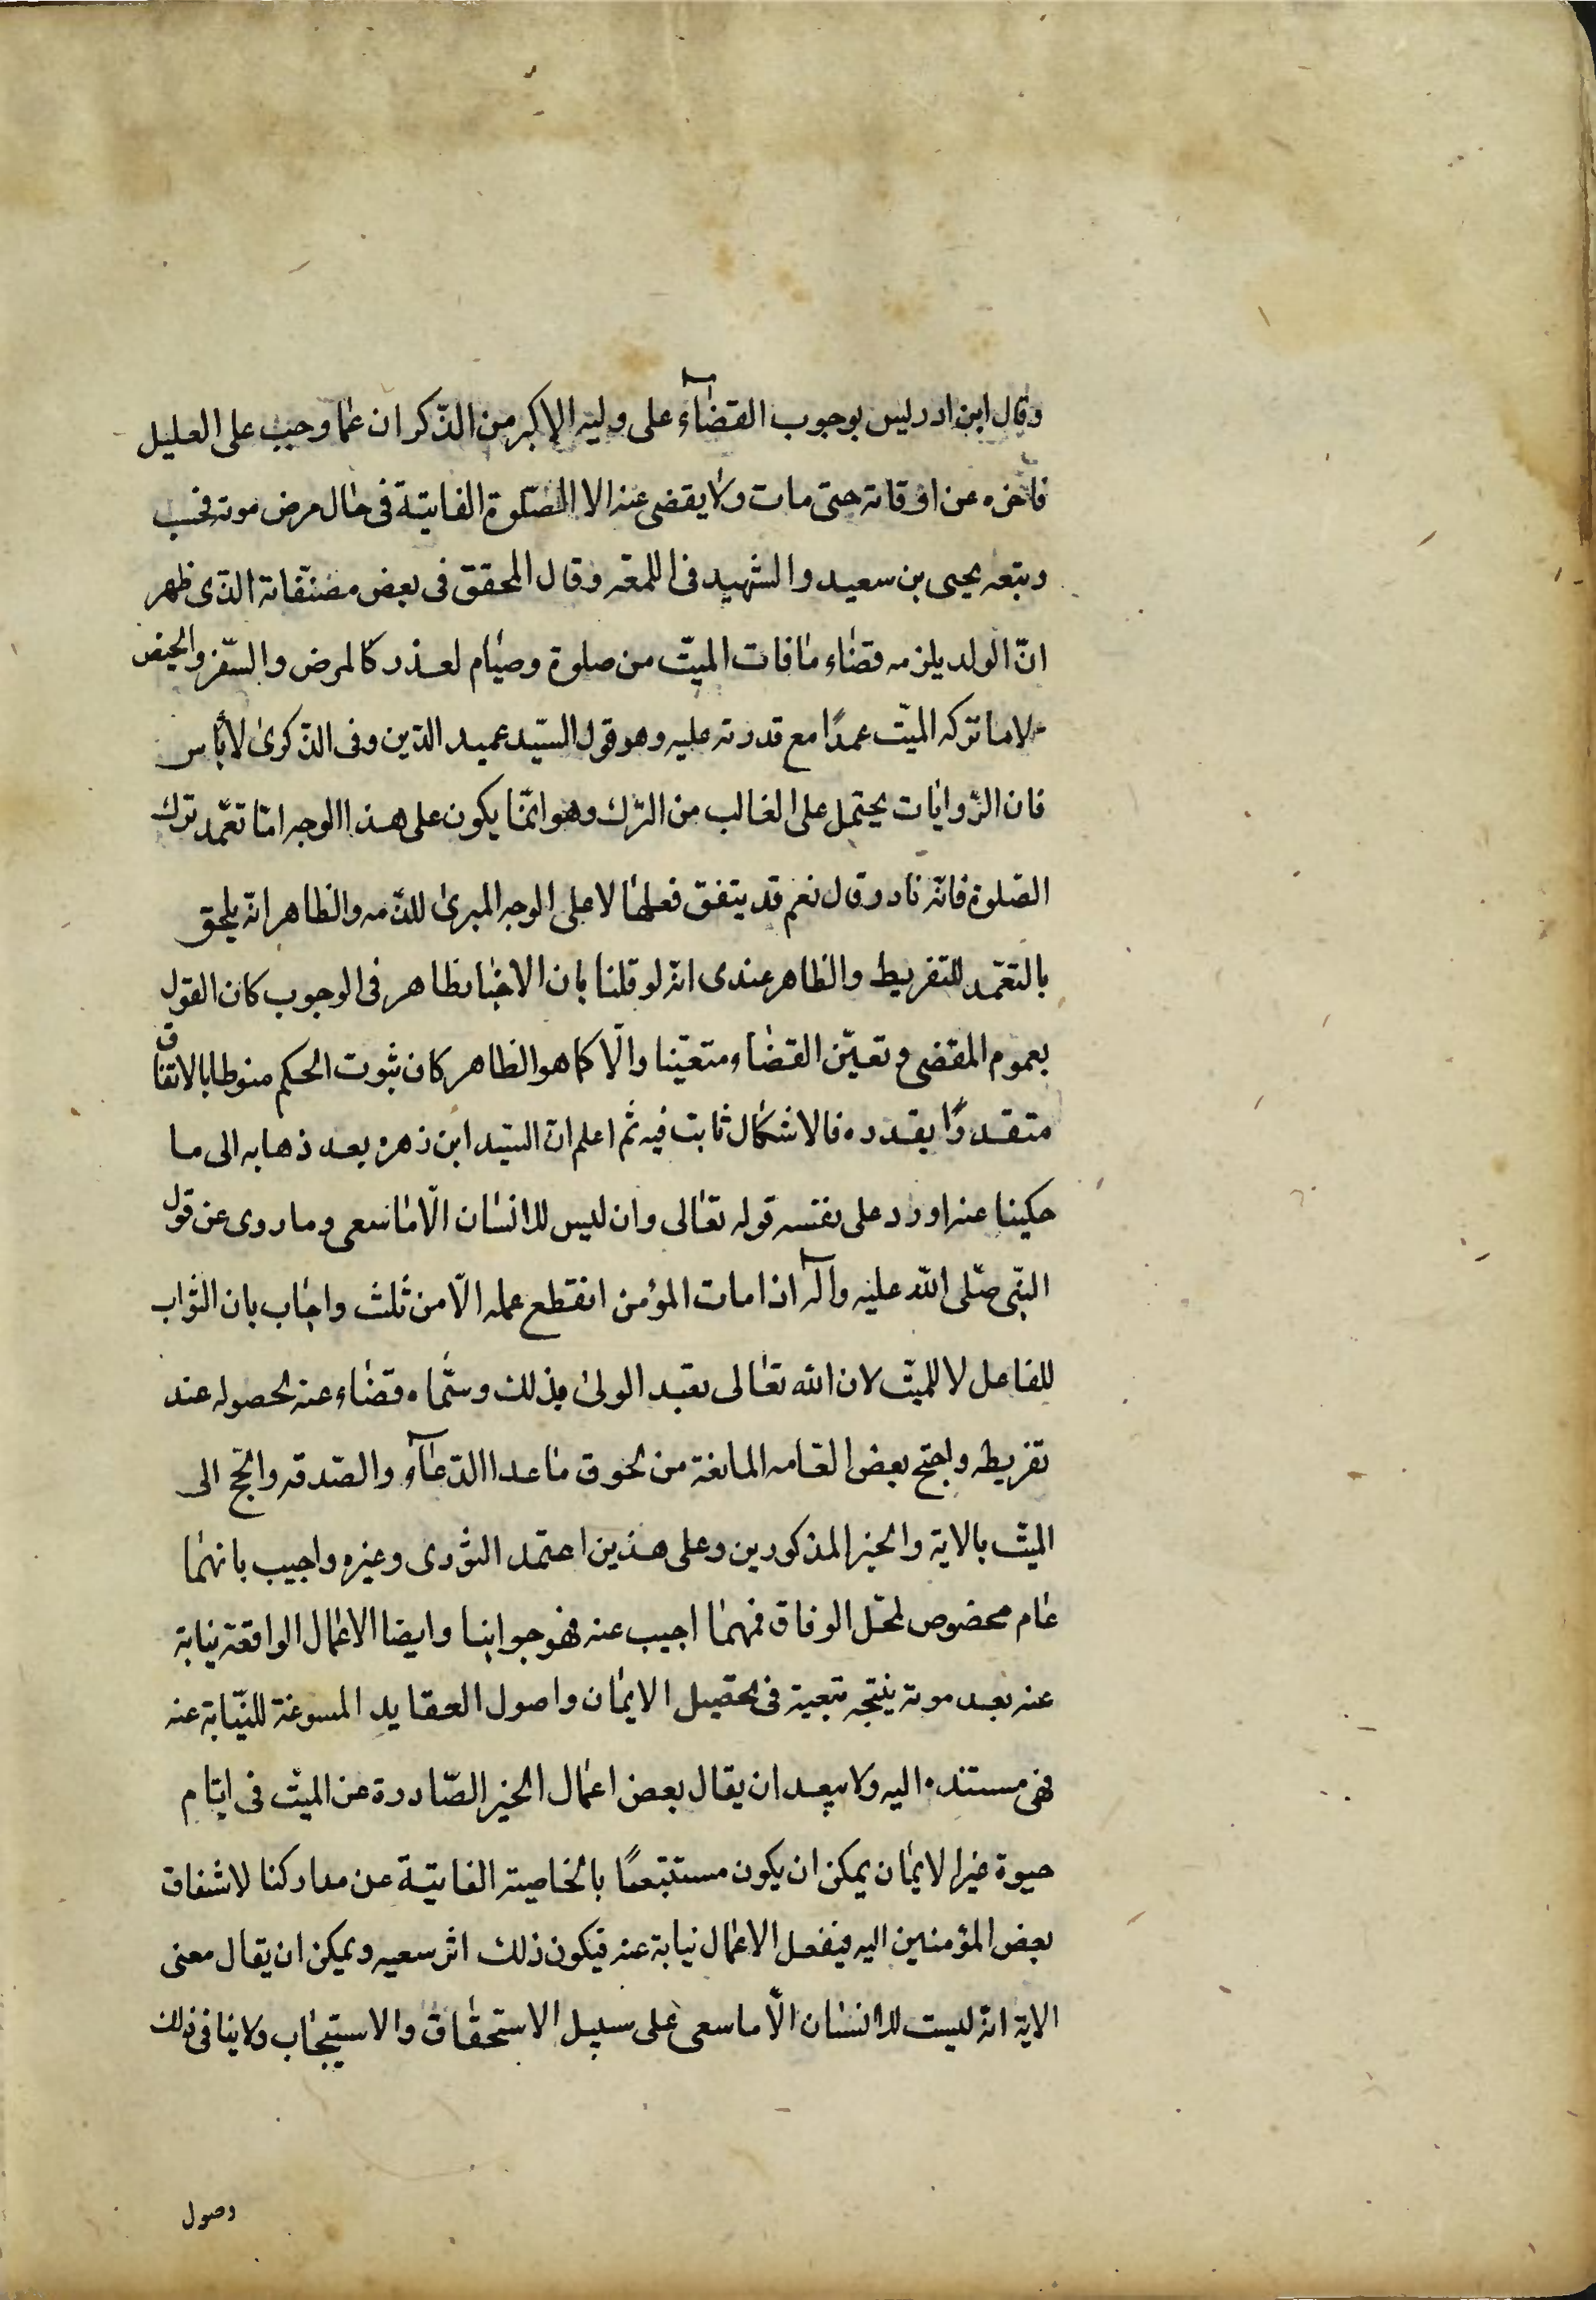 وقال ابن ادريس بوجوب القضآء على وليه الاكبر من الذّكران عمّا وجب على العليل
فأخره عن اوقاته حتى مات ولا يقضى عنه الا الصّلوة الفايتة فى حال مرض موته فحسب
وتبعه يحيى بن سعيد والشهيد فى اللمعه وقال المحقق فى بعض مصنّفاته الذّى ظهر
انّ الولد يلزمه قضاء مافات الميّت من صلوة وصيام لعذر كالمرض والسّفر والحيض
لا ما تركه الميّت عمدًا مع قدرته عليه وهو قول السّيد عميد الدّين وفى الذّكرى لا بأس
فان الرّوايات يحتمل على الغالب من الترك وهو انّما يكون على هذا الوجه امّا تعمّد ترك
الصّلوة فانّه نادر وقال نعم قد يتفق فعلها لا على الوجه المبرئ للذّمه والظاهر انّه يلحق
بالتعمّد للتفريط والظاهر عندى انّه لو قلنا بان الاخبار ظاهر فى الوجوب كان القول
بعموم المقضى وتعيّن القضاء متعيّنا والّا كما هو الظاهر كان ثبوت الحكم منوطا بالاتفاق
متقدرًا بقدره فالاشكال ثابت فيه ثم اعلم انّ السّيد ابن زهره بعد ذهابه الى ما
حكينا عنه اورد على نفسه قوله تعالى وان ليس للانسان الّا ما سعى وما روى عن قول
النّبى صلّى الله عليه وآله اذا مات المؤمن انقطع عمله الّا من ثلث واجاب بان الثواب
للفاعل لا للميّت لان الله تعالى تعبّد الولى بذلك وسمّاه قضاء عنه لحصوله عند
تفريطه واحتج بعض العامه المانعة من لحوق ما عدا الدّعآء والصّدقه والحجّ الى
الميّت بالاية والخبر المذكورين وعلى هذين اعتمد النووى وغيره واجيب بانهما
عام مخصوص لمحلّ الوفاق فمهما اجيب عنه فهو جوابنا وايضا الاعمال الواقعة نيابة
عنه بعد موته نتيجه تبعية فى تحصيل الايمان واصول العقايد المسوغة للنّيابة عنه
فهى مستنده اليه ولا يبعد ان يقال بعض اعمال الخير الصّادرة عن الميّت فى ايّام
حيوة غير الايمان يمكن ان يكون مستتبعًا بالخاصية الفايتة عن مداركنا لاشفاق
بعض المؤمنين اليه فيفعل الاعمال نيابة عنه فيكون ذلك اثر سعيه ويمكن ان يقال معنى
الاية انّه ليست للانسان الّا ما سعى على سبيل الاستحقاق والاستيجاب ولا ينافى ذلك
وصول